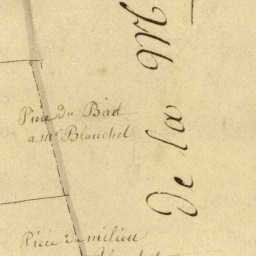 Pièce du Bad
a Mr Blanchet
De la
Pièce du milieu